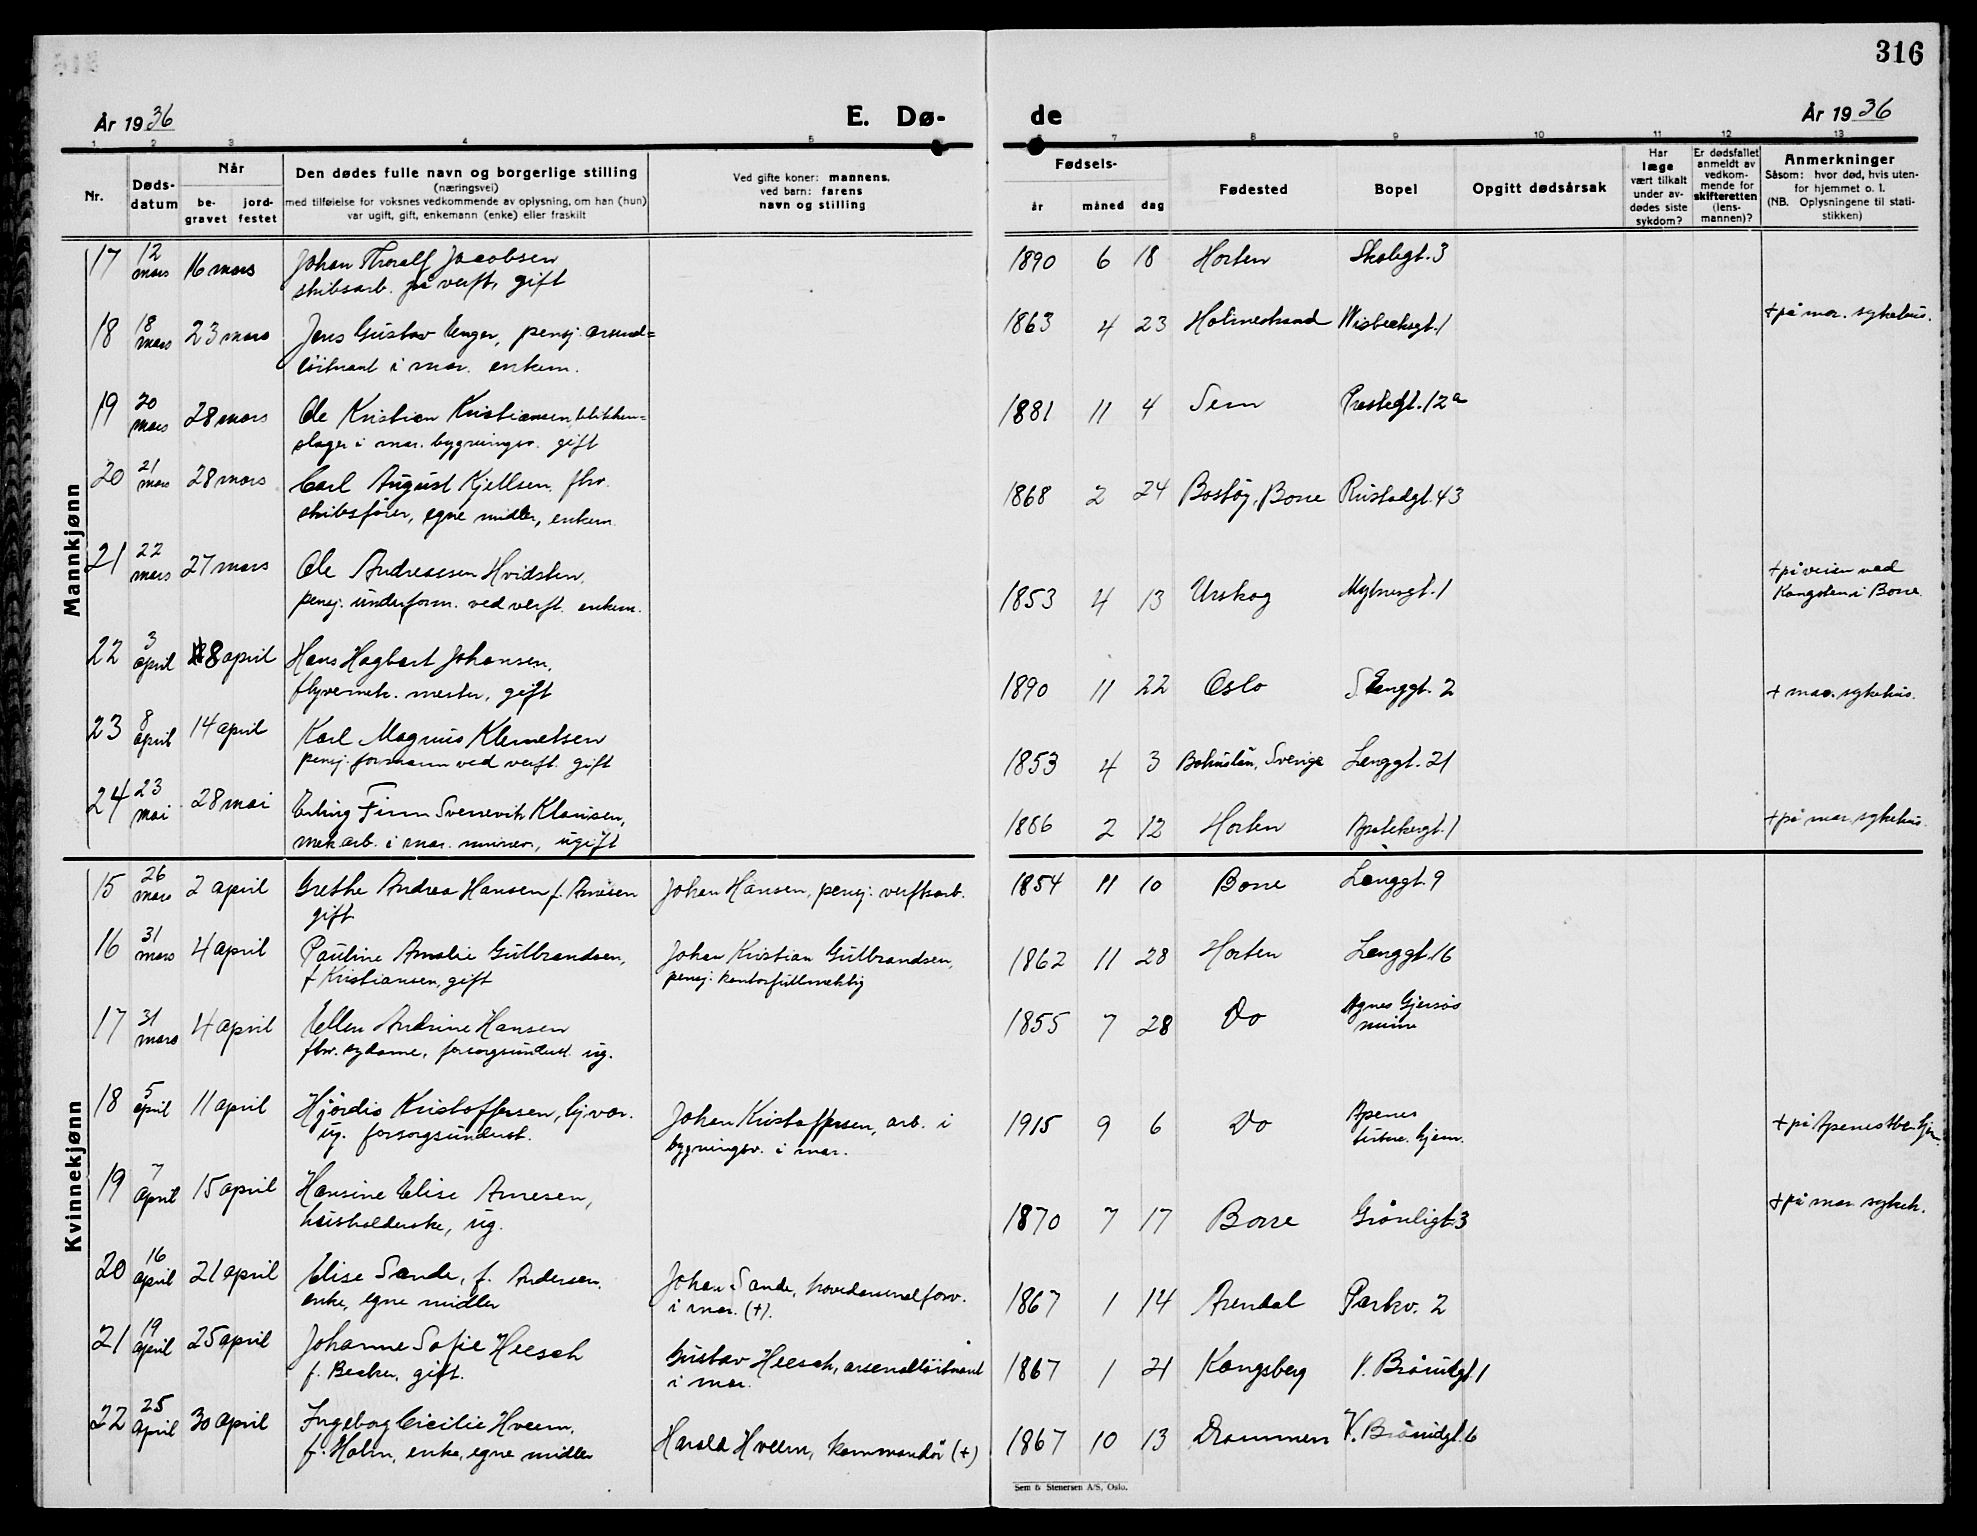 316
År 1936
E. Dø-
de
År 1936
1 2 3 4 5 6 7 8 9 10 11 12 13
Nr.
Døds-
datum
Når
be-
gravet
jord-
festet
Den dødes fulle navn og borgerlige stilling
(næringsvei)
med tilføielse for voksnes vedkommende av oplysning, om han (hun)
var ugift, gift, enkemann (enke) eller fraskilt
Ved gifte koner: mannens,
ved barn: farens
navn og stilling
Fødsels-
år måned dag
Fødested
Bopel
Opgitt dødsårsak
Har
læge
vært tilkalt
under av-
dødes siste
sykdom?
Er dødsfallet
anmeldt av
vedkom-
mende for
skifteretten
(lens-
mannen)?
Anmerkninger
Såsom: hvor død, hvis uten-
for hjemmet o. l.
(NB. Oplysningene til stati-
stikken)
Mannkjønn
17 12 mars 16 mars Johan Thoralf Jacobsen 1890 6 18 Horten Skolegt. 3
skibsarb. på verft, gift
18 18 mars 23 mars Jens Gustav Enger, pensj. arsenal= 1863 4 23 Holmestrand Wisbechsgt. 1 + på mar. sykehus.
löitnant i mar. enkem.
19 20 mars 28 mars Ole Kristian Kristiansen, blikken= 1881 11 4 Sem Prestegt. 12a
slager i mar. bygningsv. gift
20 21 mars 28 mars Carl August Kjellsen, fhv. 1868 2 24 Bastøy, Borre Rustadgt. 43
skibsfører, egne midler, enkem.
21 22 mars 27 mars Ole Andreassen Hvidsten, 1853 4 13 Urskog + på veien ved
pensj. underform. ved verft. enkem. i Borre
22 3 april 8 april Hans Hagbart Johansen, 1890 11 22 Oslo Storggt. 2 + mar. sykehus.
flyvemek. mester, gift
23 8 april 14 april Karl Magnus Klemetsen 1853 4 3 Bohuslän, Sverige Langgt. 21
pensj. formann ved verft. gift
24 23 mai 28 mai Erling Finn Klausen, 1886 2 12 Horten Apotekergt. 1 + på mar. sykehus.
mek. arb. i mar. minev., ugift
Kvinnekjønn
15 26 mars 2 april Grethe Andrea Hansen f. Arnesen Johan Hansen, pensj. verftsarb. 1854 11 10 Borre Langgt. 9
gift
16 31 mars 4 april Pauline Amalie Gulbrandsen, Johan Kristian Gulbrandsen, 1862 11 28 Horten Langgt. 16
f. Kristiansen, gift pensj. kontorfullmektig
17 31 mars 4 april Ellen Andrine Hansen 1855 7 28 Do Agnes Gjersøs
fhv. sydame, forsorgsunderst. ug. minne
18 5 april 11 april Hjördis Kristoffersen, hjvær. Johan Kristoffersen, arb. i 1915 9 6 Do Apenes + på Apenes tbc. hjem.
ug. forsorgsunderst. bygningsv. i mar. tuberk. hjem.
19 7 april 15 april Hansine Elise Arnesen, 1870 7 17 Borre Grönligt. 3 + på mar. sykeh.
husholderske, ug.
20 16 april 21 april Elise Sande, f. Andersen, Johan Sande, hovedarsenalforv. 1867 1 14 Arendal Parkv. 2
enke, egne midler i mar. (+).
21 19 april 25 april Johanne Sofie Heesch Gustav Heesch, arsenallöitnant 1867 1 21 Kongsberg V. Braarudgt. 1
f. Becker, gift. i mar.
22 25 april 30 april Ingeborg Cicilie Hveem, Harald Hveem, kommandör (+) 1867 10 13 Drammen V. Braarudgt. 6
f. Holm, enke, egne midler
Sem & Stenersen A/S, Oslo.